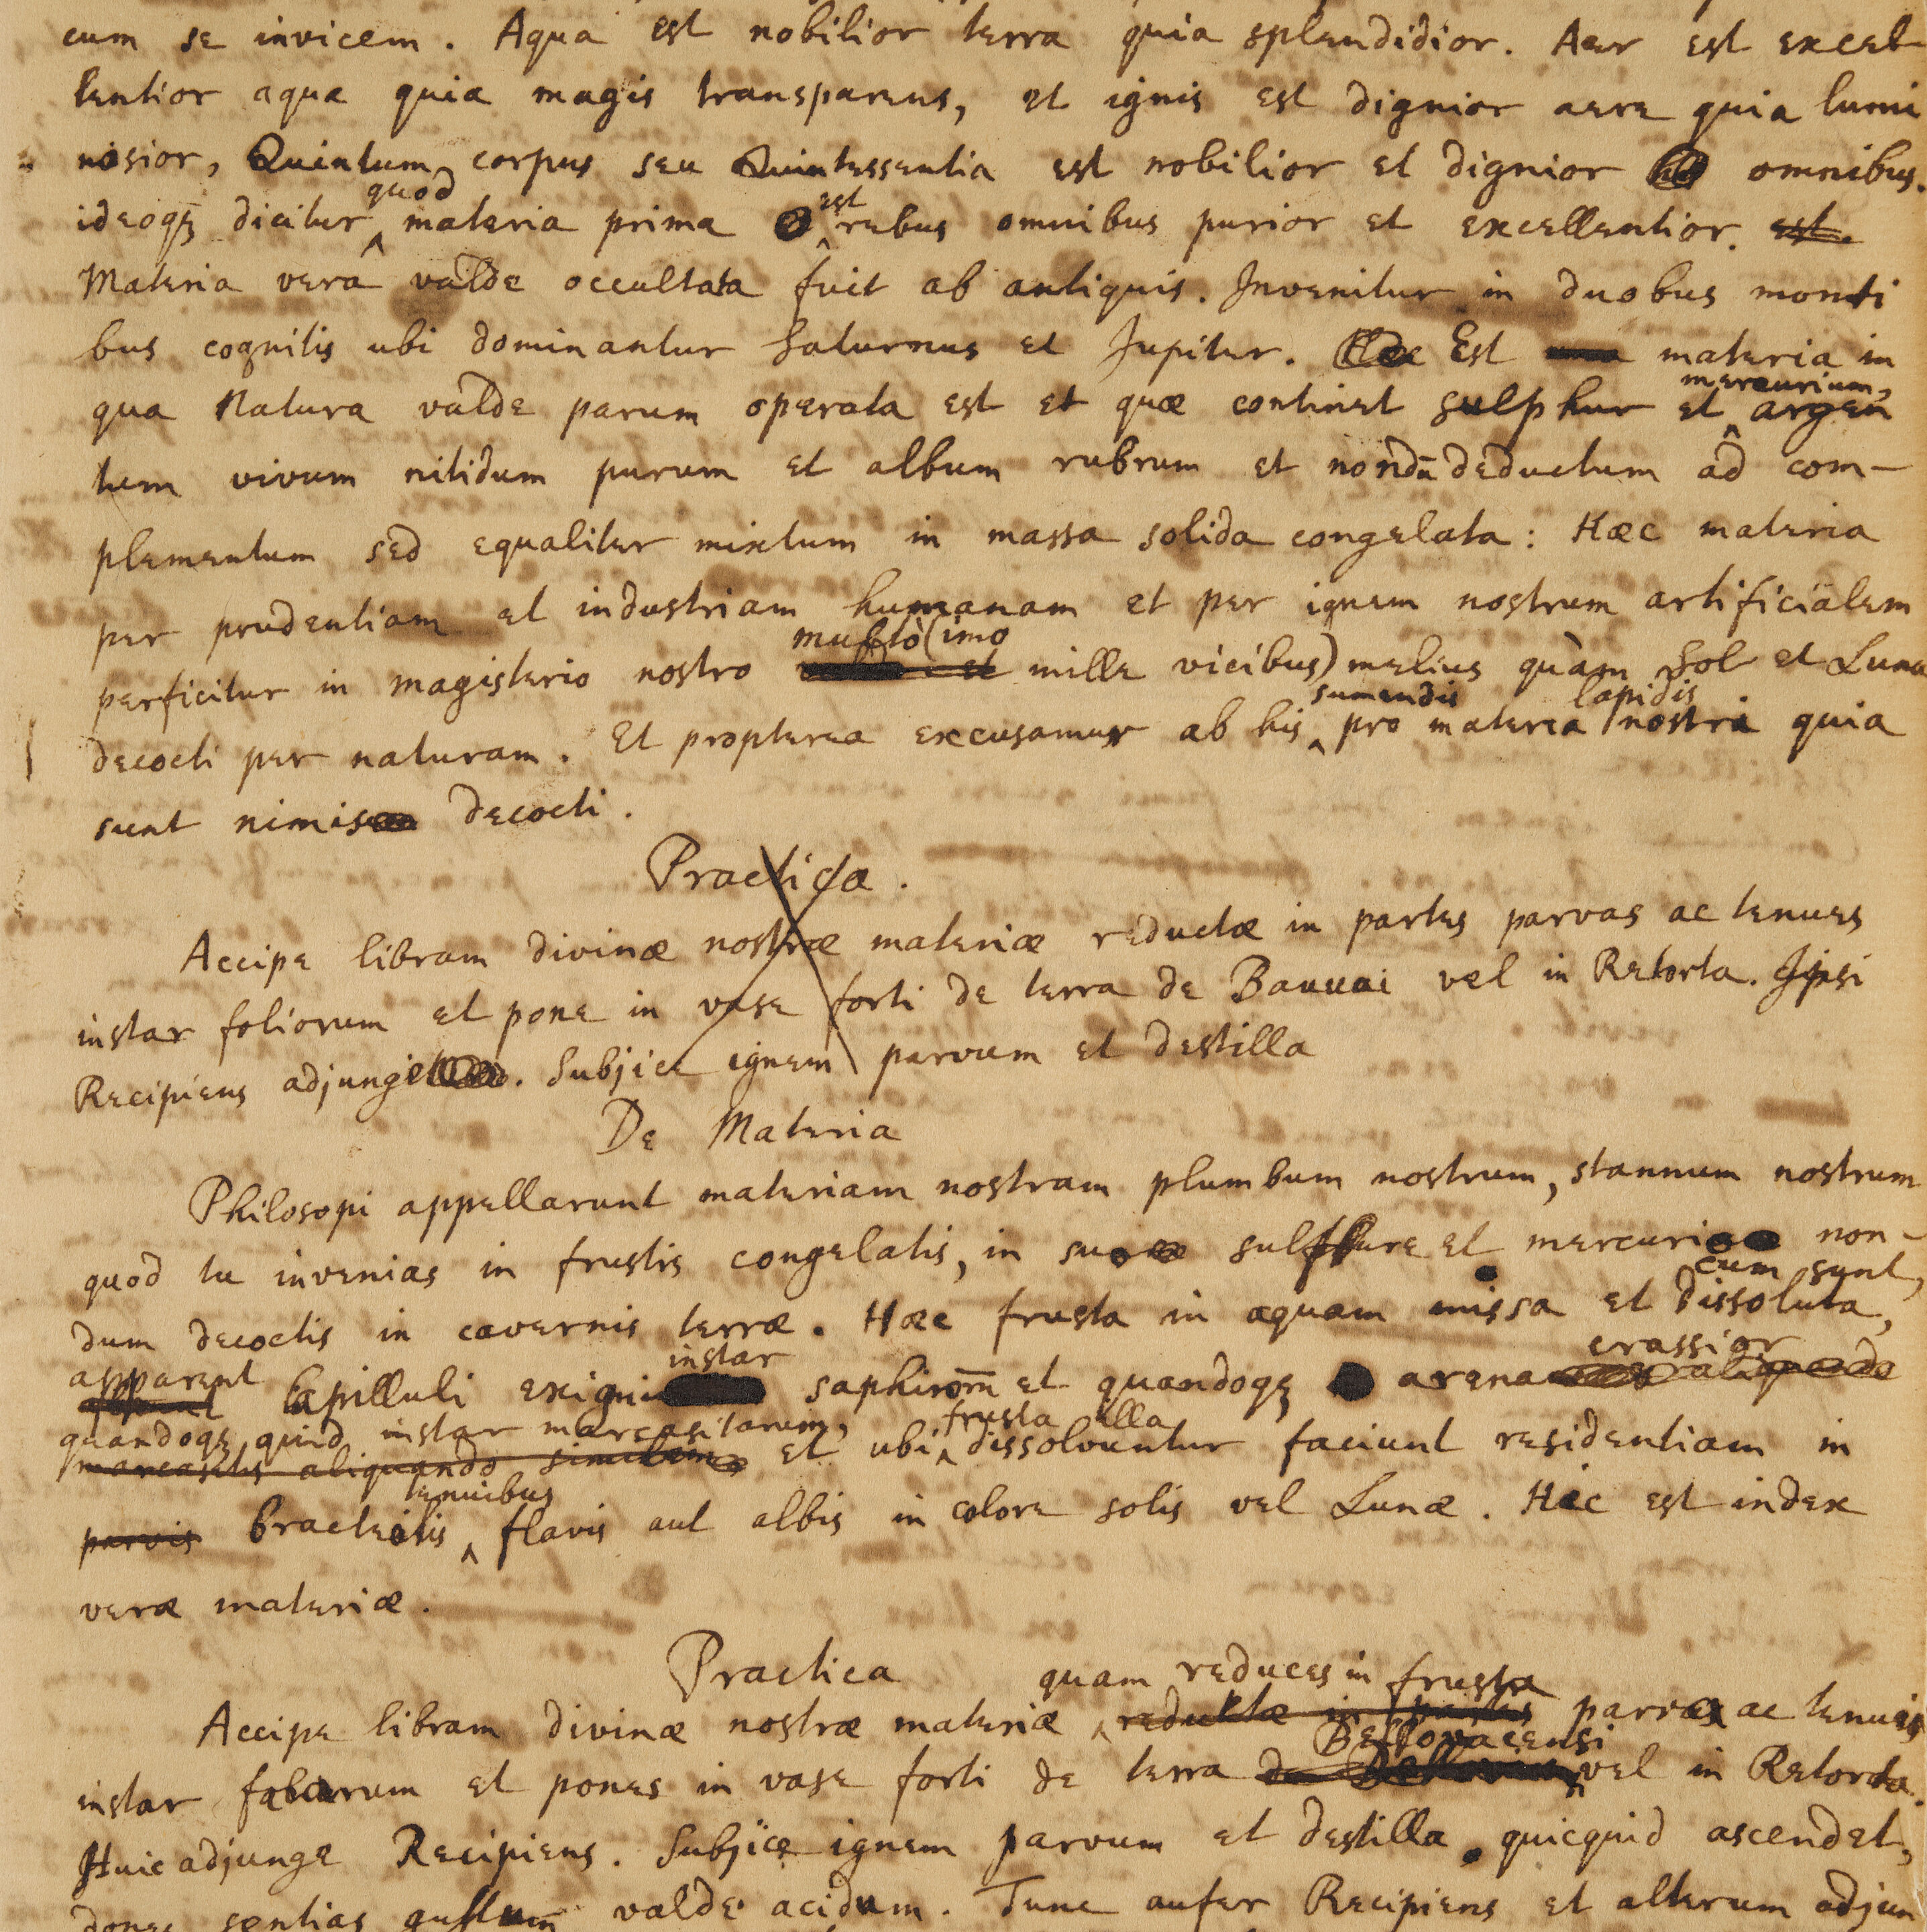 cum se invicem. Aqua est nobilior terra quia splendidior. Aer est excel
lentior aqua quia magis transparens, et ignis est dignior aere quia lumi
nosior, Quintum corpus seu Quintessentia est nobilior et dignior omnibus.
quod est
ideoqȝ dicitur materia prima rebus omnibus purior et excellentior. est.
Materia vera valde occultata fuit ab antiquis. Invenitur in duobus monti
bus cognitis ubi dominantur Saturnus et Jupiter. Est materia in
mercurium,
qua Natura valde parum operata est et quæ continet sulphur et argen
tum vivum nitidum purum et album rubrum et nondū deductum ad com-
plementum sed equaliter mixtum in massa solida congelata: Hæc materia
per prudentiam et industriam humanam et per ignem nostrum artificialem
multò (imo
perficitur in magisterio nostro et mille vicibus) melius quàm Sol et Luna
sumendis lapidis
decocti per naturam. Et propterea excusamur ab his pro materia nostri quia
sunt nimis decocti.
Practica.
Accipe libram divinæ nostræ materiæ reductæ in partes parvas ac tenues
instar foliorum et pone in vase forti de terra de Bauvai vel in Retorta. Ipsi
Recipiens adjunge. Subjice ignem parvum et destilla
De Materia
Philosopi appellarunt materiam nostram plumbum nostrum, stannum nostrum
quod tu invenias in frustis congelatis, in suo sulphure et mercurio non-
cum sunt,
dum decoctis in cavernis terræ. Hæc frusta in aquam missa et dissoluta,
apparent instar crassior
lapilluli exigui saphirom̄ et quandoqȝ arena aliquando
quandoqȝ quid instar marcasitarum, frusta illa
marcasitis aliquando et ubi dissolvuntur faciunt residentiam in
tenuibus
parvis bracteolis flavis aut albis in colore solis vel Lunæ. Hic est index
veræ materiæ.
Practica
quam reduces in frusta
Accipe libram divinæ nostræ materiæ reductæ in partes parva ac tenuia
Bellovacensi
instar fabarum et pones in vase forti de terra de vel in Retorta.
Huic adjunge Recipiens. Subjice ignem parvum et destilla quicquid ascendet,
donec sentias gustum valde acidum. Tunc aufer Recipiens et alterum adjun